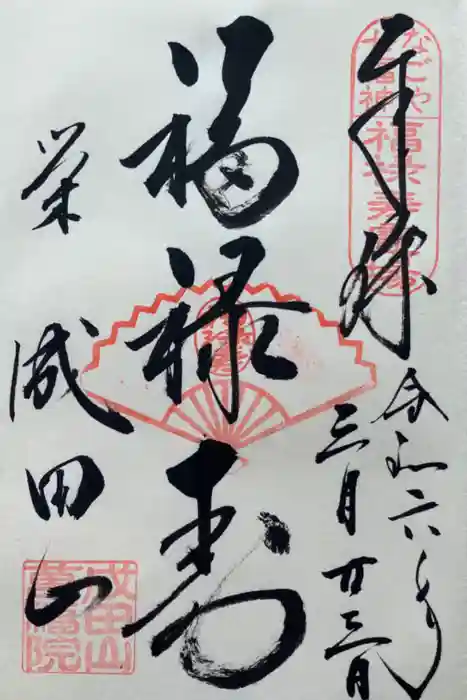 奉拝
なごや
七福神
福禄寿霊場
令和六年
三月廿三日
福禄寿
栄
成田山
成田山
萬福院